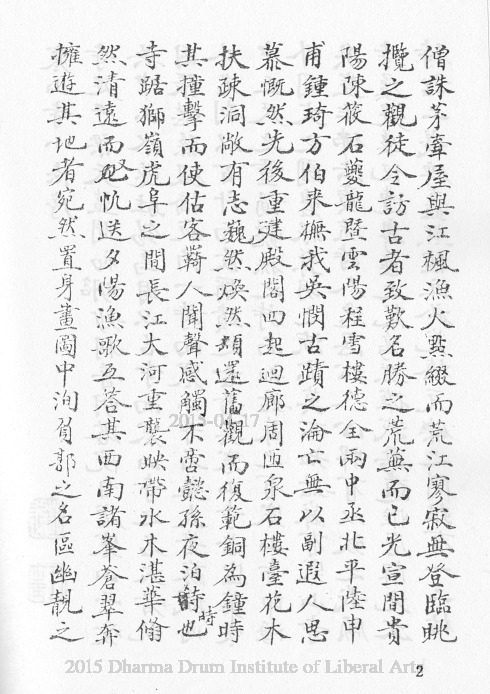 僧誅茅牽屋與江楓漁火點綴而荒江寥寂無登臨眺
攬之觀徒令訪古者致歎名勝之荒蕪而已光宣間貴
陽陳筱石夔龍曁雲陽程雪樓德全兩中丞北平陸申
甫鍾琦方伯來撫我吳憫古蹟之淪亡無以副遐人思
慕慨然先後重建殿閣四起迴廊周匝泉石樓臺花木
扶疎洞敞有志巍然煥然頓還舊觀而復範銅為鐘時
其撞擊而使估客羇人聞聲感觸不啻懿孫夜泊時也
時
寺踞獅嶺虎阜之間長江大河重襲映帶水木湛華翛
然清遠而帆送夕陽漁歌互答其西南諸峯蒼翠奔
擁遊其地者宛然置身畫圖中洵負郭之名區幽靚之
2015 Dharma Drum Institute of Liberal Arts
2